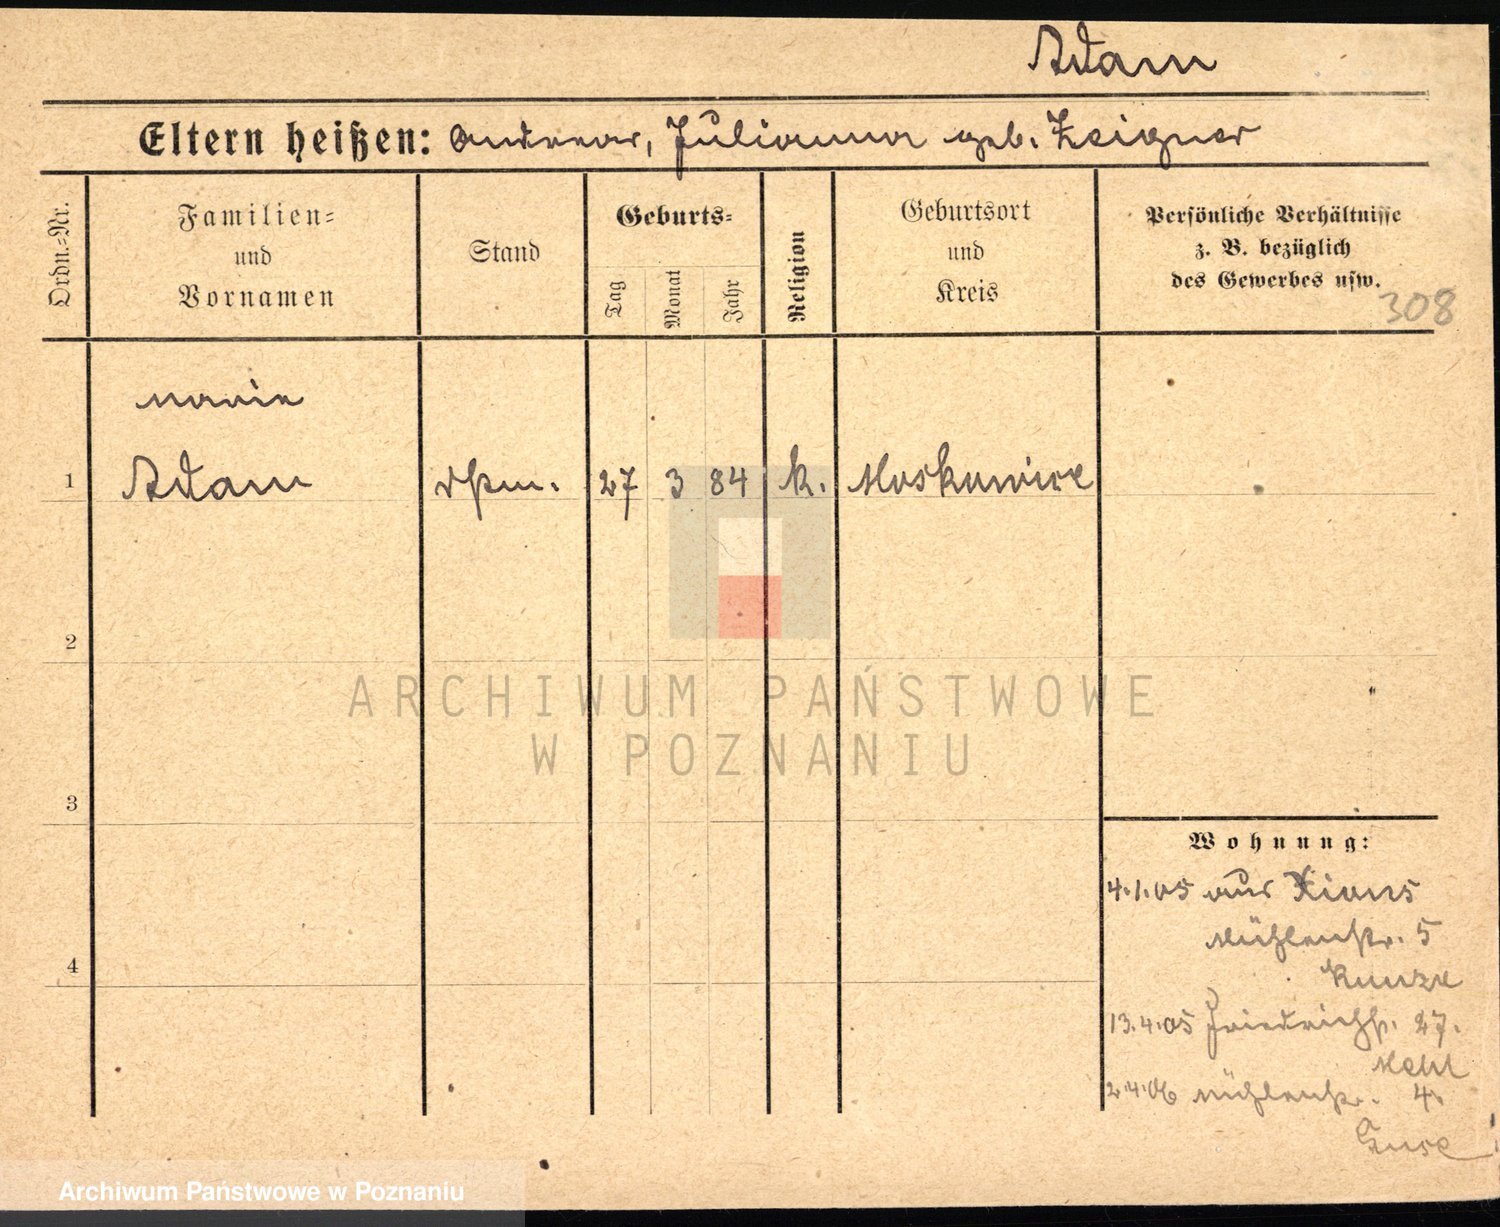 Adam
Eltern heißen: Andreas, Julianna geb. Zeigner
Ordn.=Nr.
Familien=
und
Vornamen
Stand
Geburts=
Tag
Monat
Jahr
Religion
Geburtsort
und
Kreis
Persönliche Verhältnisse
z. B. bezüglich
des Gewerbes usw.
308
Marie
1 Adam 27 3 84 k. Moskawice
2
3
4
Wohnung:
4.1.05 aus Xions
Mühlenstr. 5
Kunze
13.4.05 Friedrichst. 27.
Mehl
2.4.06 Mühlenstr. 4.
ARCHIWUM PAŃSTWOWE
W POZNANIU
Archiwum Państwowe w Poznaniu